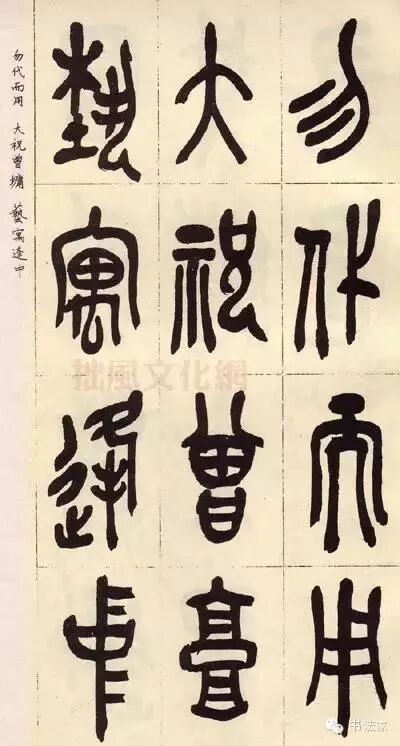 勿代而用
大祝曾墉
藝寓逢中
勿代而用 大祝曾墉 藝寓逢中
拙風文化網
书法家